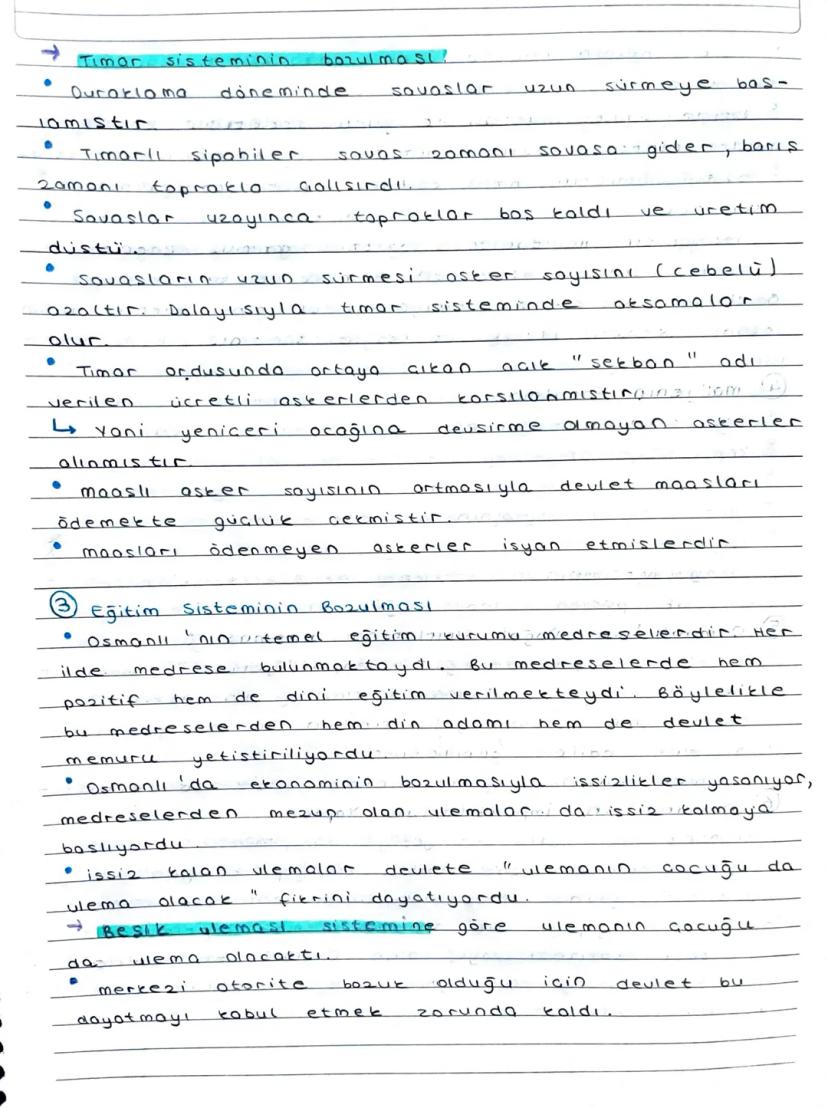 → Tımar sisteminin bozulması!
• Duraklama döneminde savaslar uzun sürmeye bas-
lamıstır.
• Tımarlı sipahiler savas zamanı savasa gider, barıs
zamanı toprakla calısırdı.
• Savaslar uzayınca topraklar bos kaldı ve üretim
düstü.
• Savasların uzun sürmesi asker sayısını (cebelü)
azaltır. Dolayısıyla tımar sisteminde aksamalar
olur.
• Tımar ordusunda ortaya cıkan acık "sekban" adı
verilen ücretli askerlerden karsılanmıstır
↳ Yani yeniceri ocağına devsirme olmayan askerler
alınmıstır.
• maaslı asker sayısının artmasıyla devlet maasları
ödemekte güclük cekmistir.
• maasları ödenmeyen askerler isyan etmislerdir
③ Eğitim Sisteminin Bozulması
• Osmanlı'nın temel eğitim kurumu medreselerdir. Her
ilde medrese bulunmaktaydı. Bu medreselerde hem
pozitif hem de dini eğitim verilmekteydi. Böylelikle
bu medreselerden hem din adamı hem de devlet
memuru yetistiriliyordu.
• Osmanlı'da ekonominin bozulmasıyla issizlikler yasanıyor,
medreselerden mezup olan ulemalar da issiz kalmaya
baslıyordu.
• issiz kalan ulemalar devlete "ulemanın cocuğu da
ulema olacak" fikrini dayatıyordu.
→ Besik uleması sistemine göre ulemanın cocuğu
da ulema olacaktı.
• merkezi otorite bozuk olduğu icin devlet bu
dayatmayı kabul etmek zorunda kaldı.